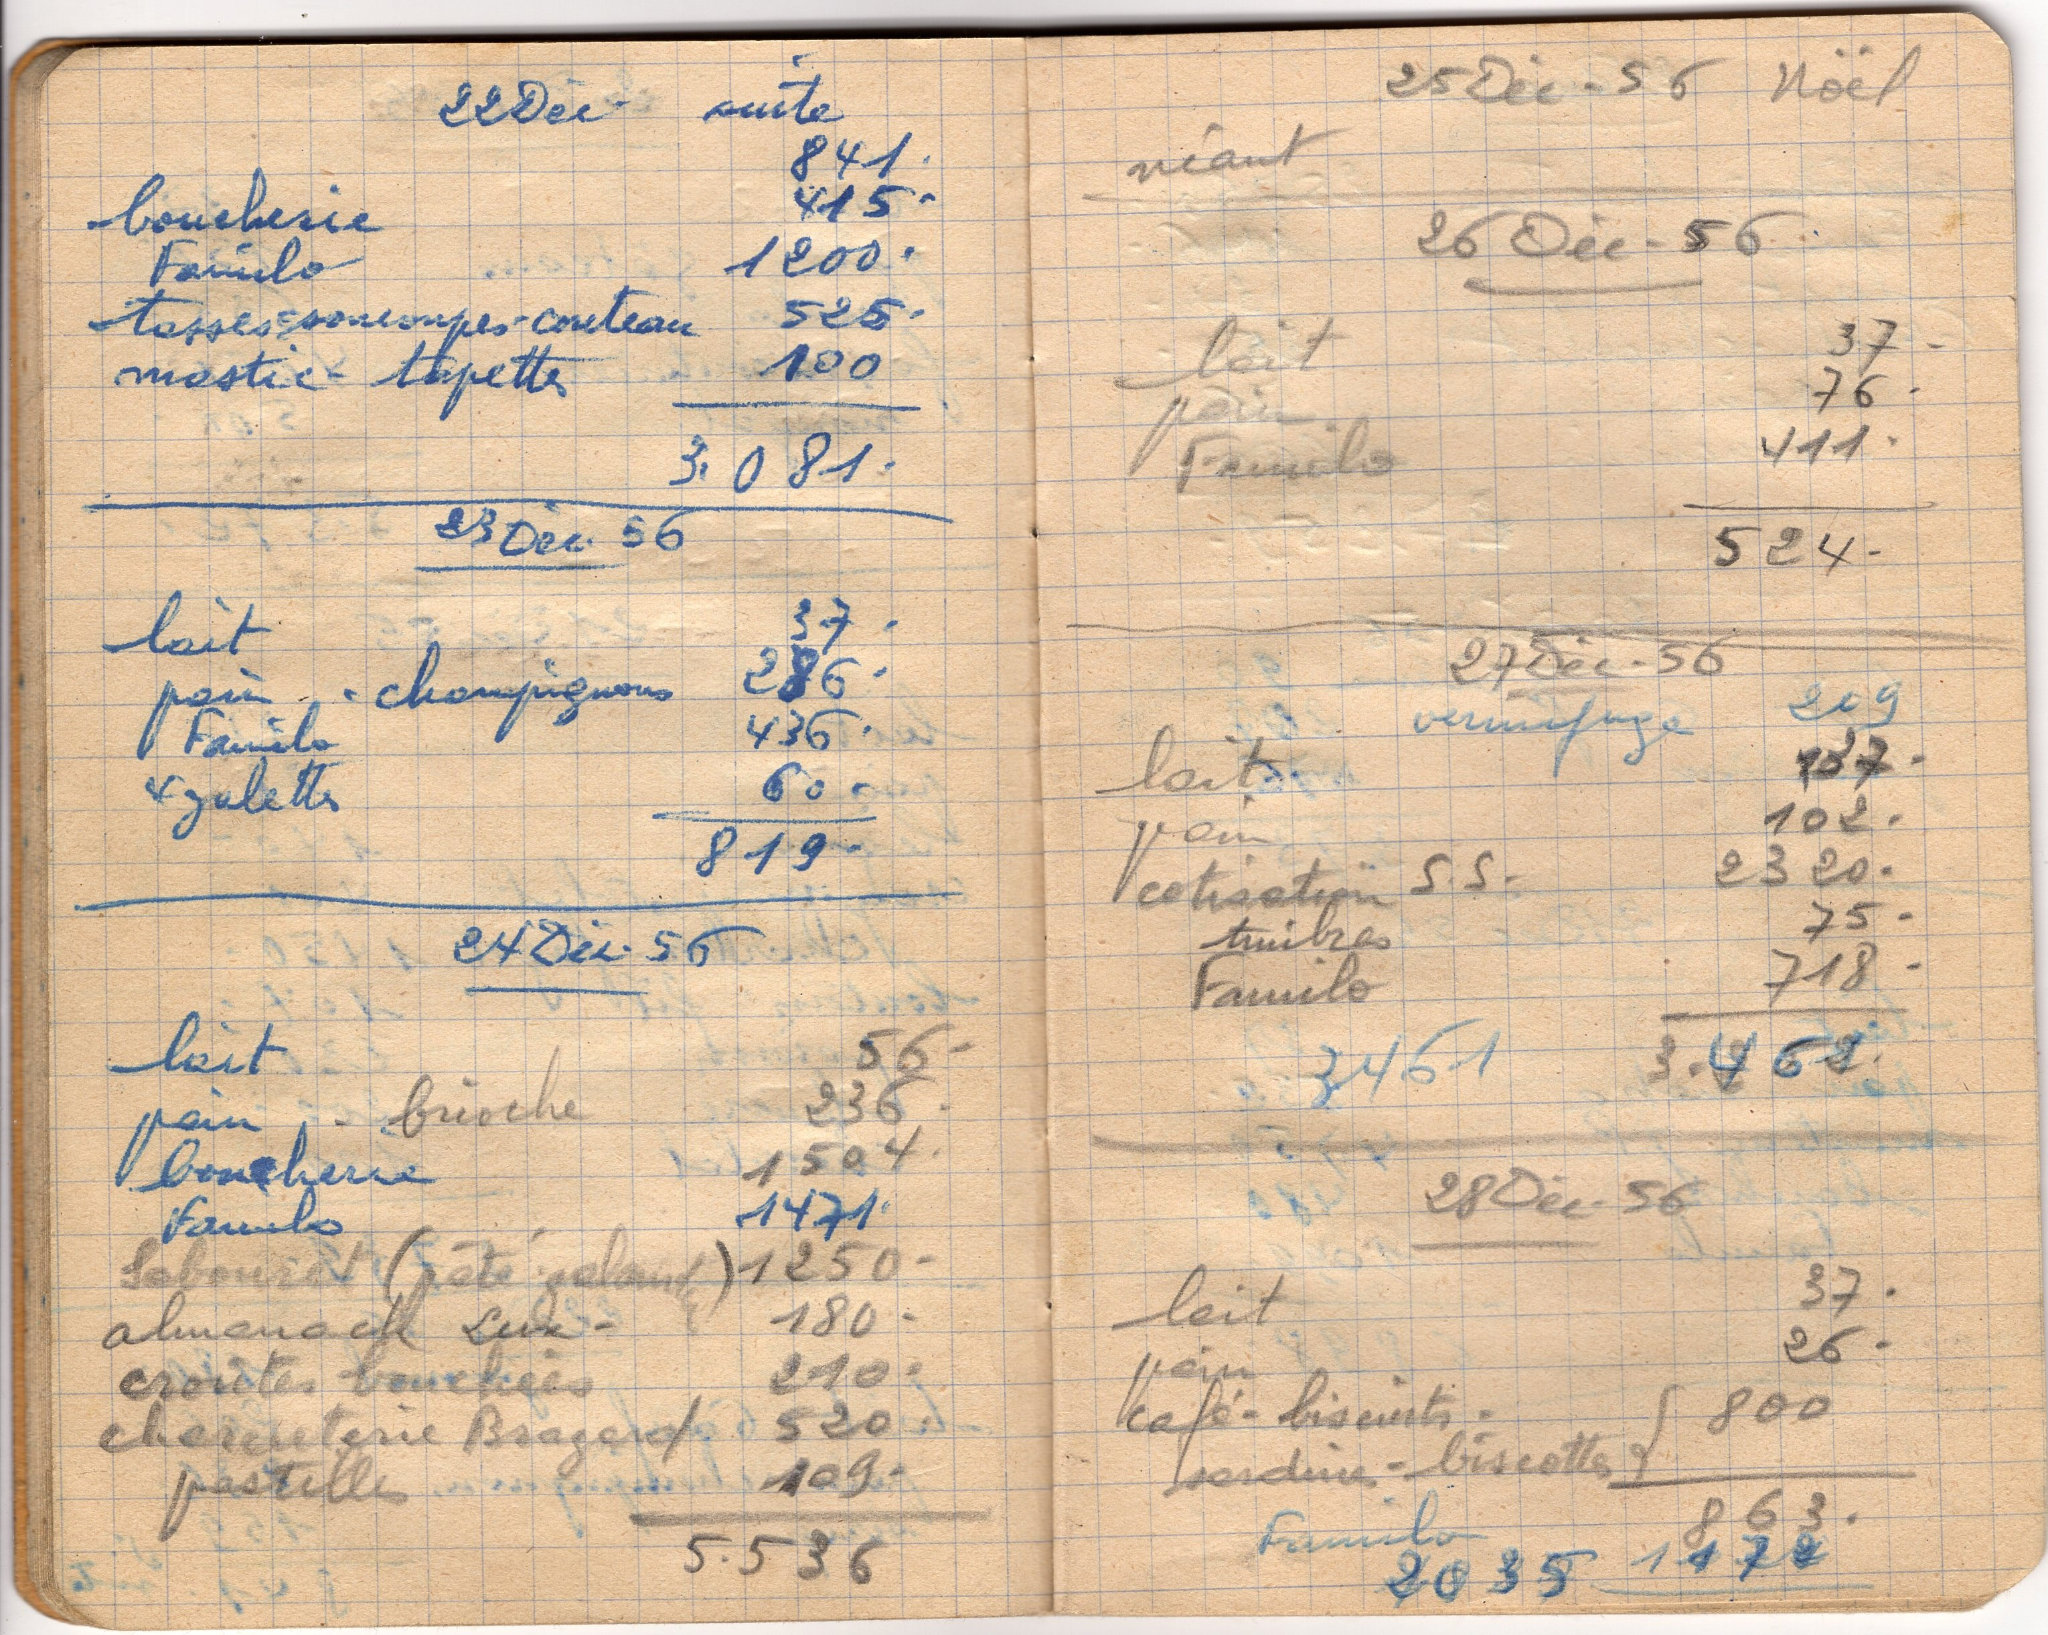 22 Déc - suite
841.
boucherie 415.
Familo 1200.
tasses-soucoupes-couteau 525.
mastic - tapettes 100
3.081.
23 Déc. 56
lait 37.
pain - champignons 286.
Familo 436.
4 galettes 60.
819.
24 Déc. 56
lait 56-
pain - brioche 236.
boucherie 1504.
Familo 1471.
Sabouret (pâté galant) 1250-
almanach 180-
croûtes bouchées 210.
charcuterie Brazard 520.
pastilles 109.
5.536
25 Déc - 56 Nöel
néant
26 Déc - 56
lait 37-
pain 76.
Familo 411.
524-
27 Déc - 56
vermifuge 209
lait 37.
pain 102.
cotisation S.S. 2320.
timbres 75-
Familo 718-
3461 3.462.
28 Déc - 56
lait 37.
pain 26.
café - biscuits - } 800
sardine - biscottes
863.
Familo 1172
2035